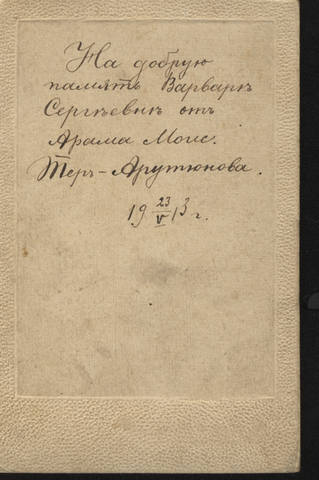 На добрую
память Варварѣ
Сергѣевнѣ отъ
Арама Моис.
Теръ-Арутюнова.
19 23/V 13 г.